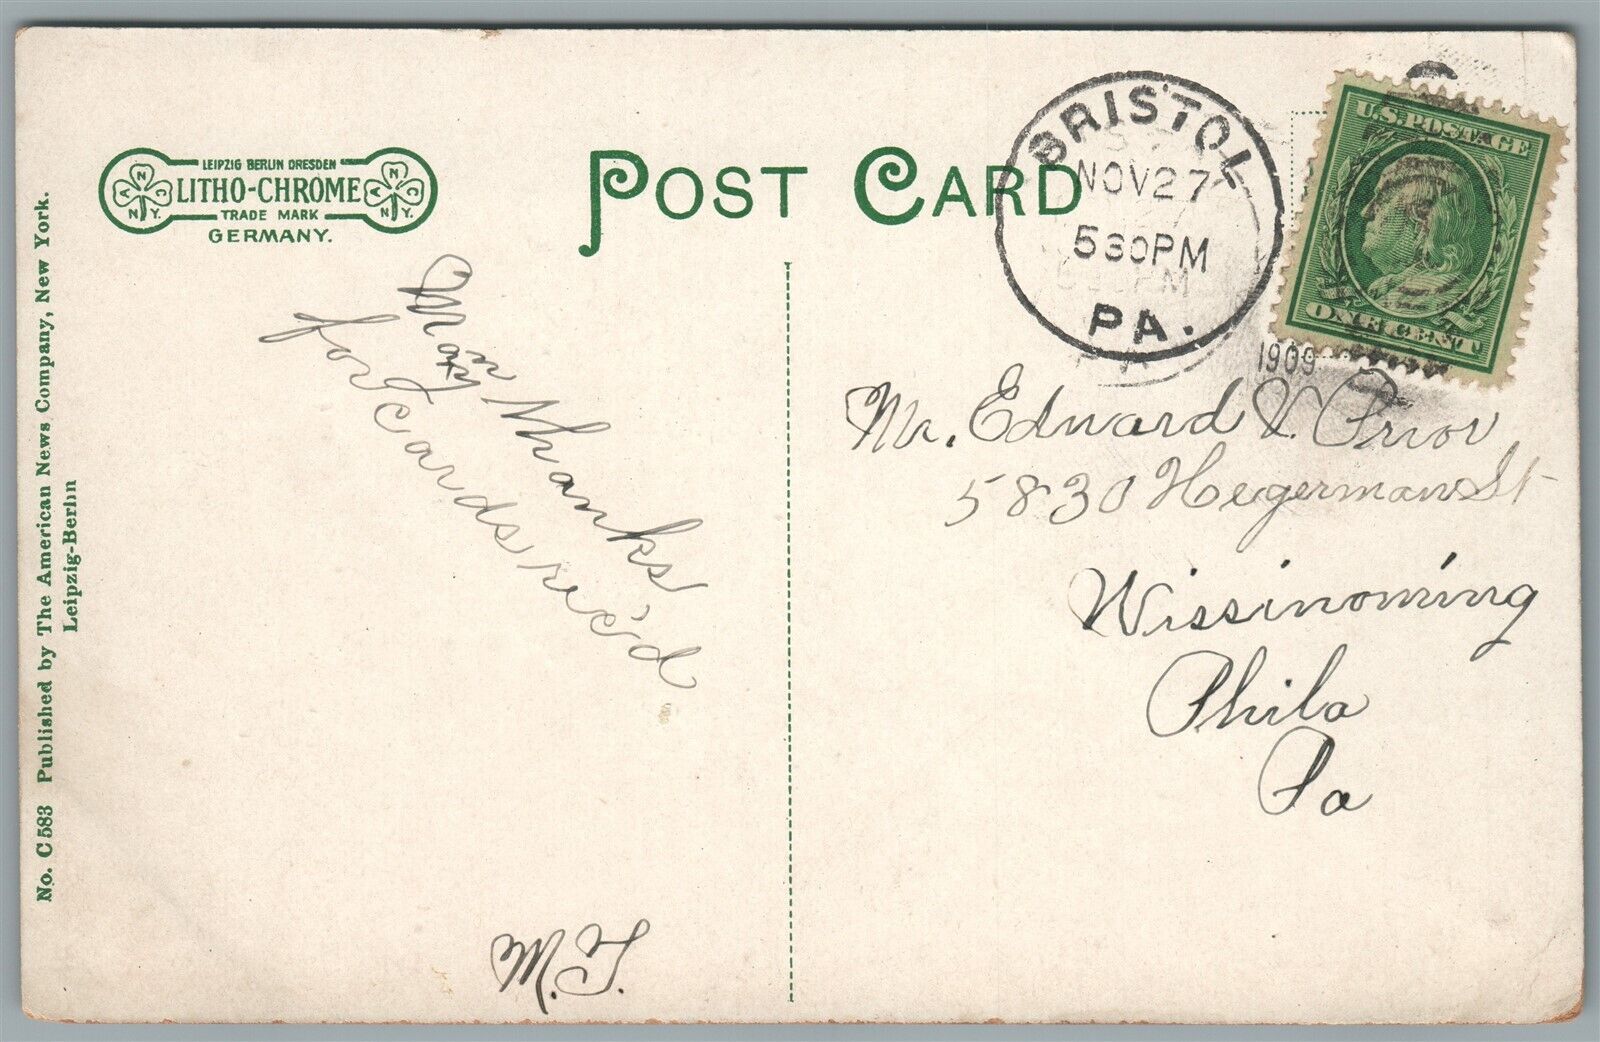 LEIPZIG BERLIN DRESDEN
LITHO-CHROME
TRADE MARK
GERMANY.
A N C
N.Y.
A N C
N.Y.
POST CARD
BRISTOL
NOV 27
530PM
PA.
1909
U.S. POSTAGE
ONE CENT
No. C 583 Published by The American News Company, New York.
Leipzig-Berlin
Many Thanks
for cards rec'd
Mr. Edward V. Prior
5830 Hegerman St
Wissinoming
Phila
Pa